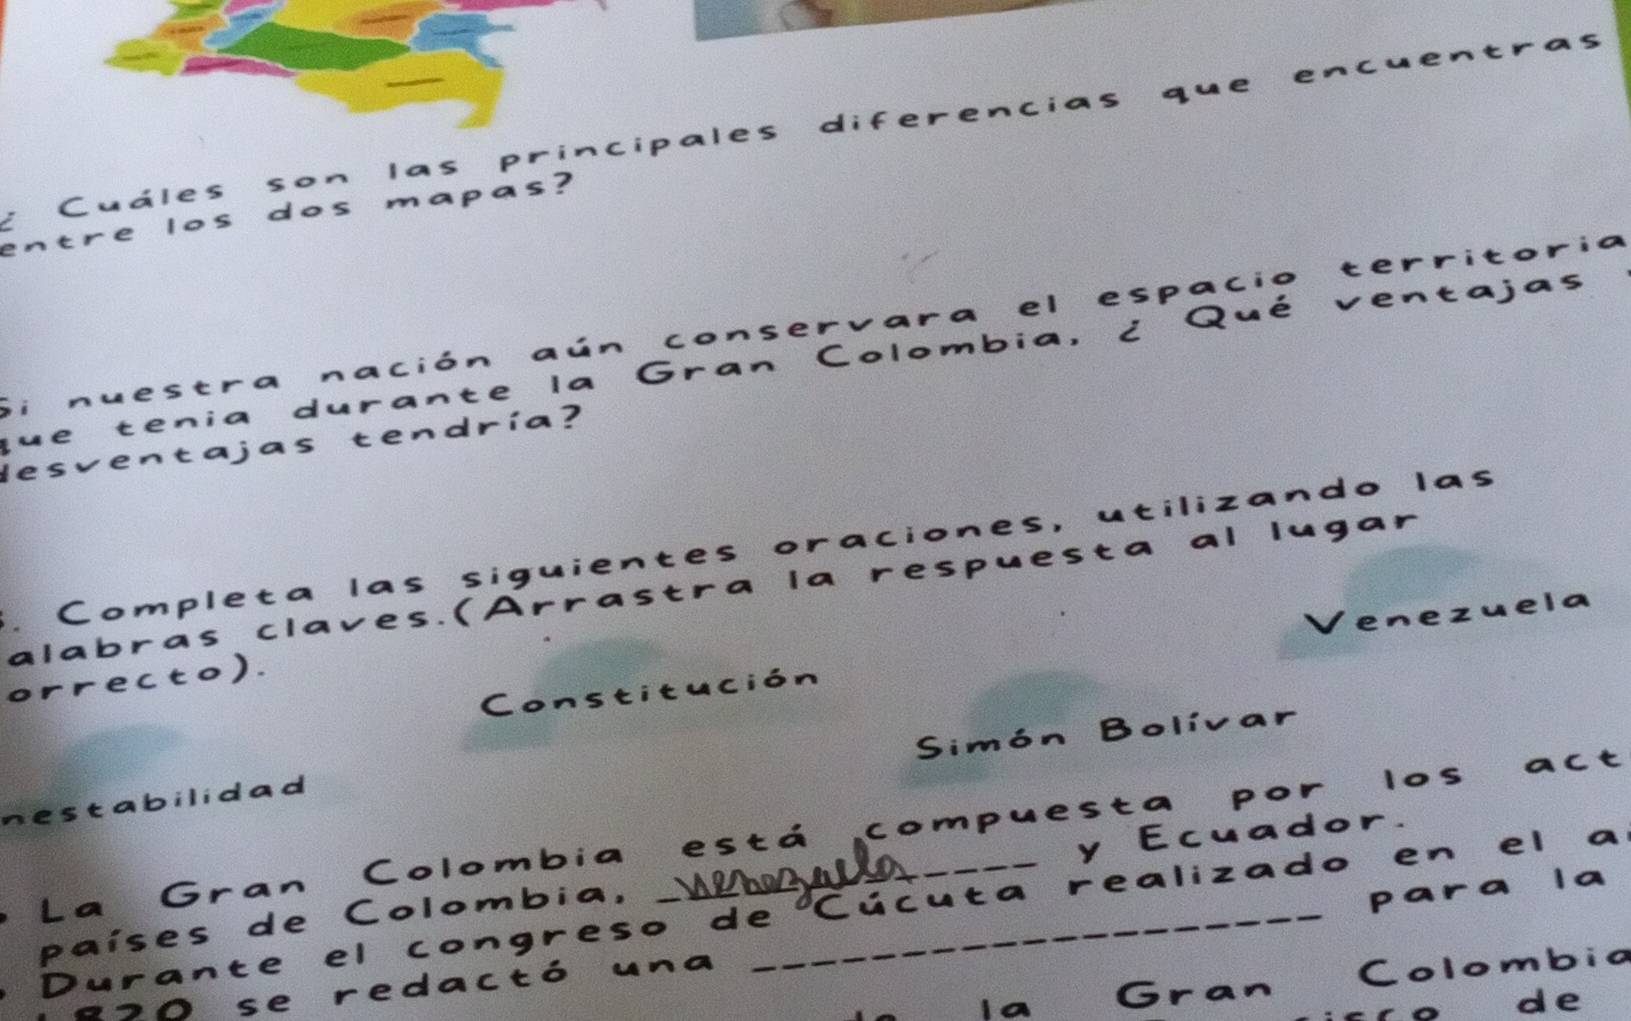 ¿ Cuáles son las principales diferencias que encuentras
entre los dos mapas?
Si nuestra nación aún conservara el espacio territoria
que tenia durante la Gran Colombia, ¿ Qué ventajas
desventajas tendría?
. Completa las siguientes oraciones, utilizando las
alabras claves.(Arrastra la respuesta al lugar
orrecto).
Venezuela
Constitución
Simón Bolívar
nestabilidad
La Gran Colombia está compuesta por los act
países de Colombia, Venezuela y Ecuador.
Durante el congreso de Cúcuta realizado en el a
1820 se redactó una ____________________ para la
la Gran Colombia
de